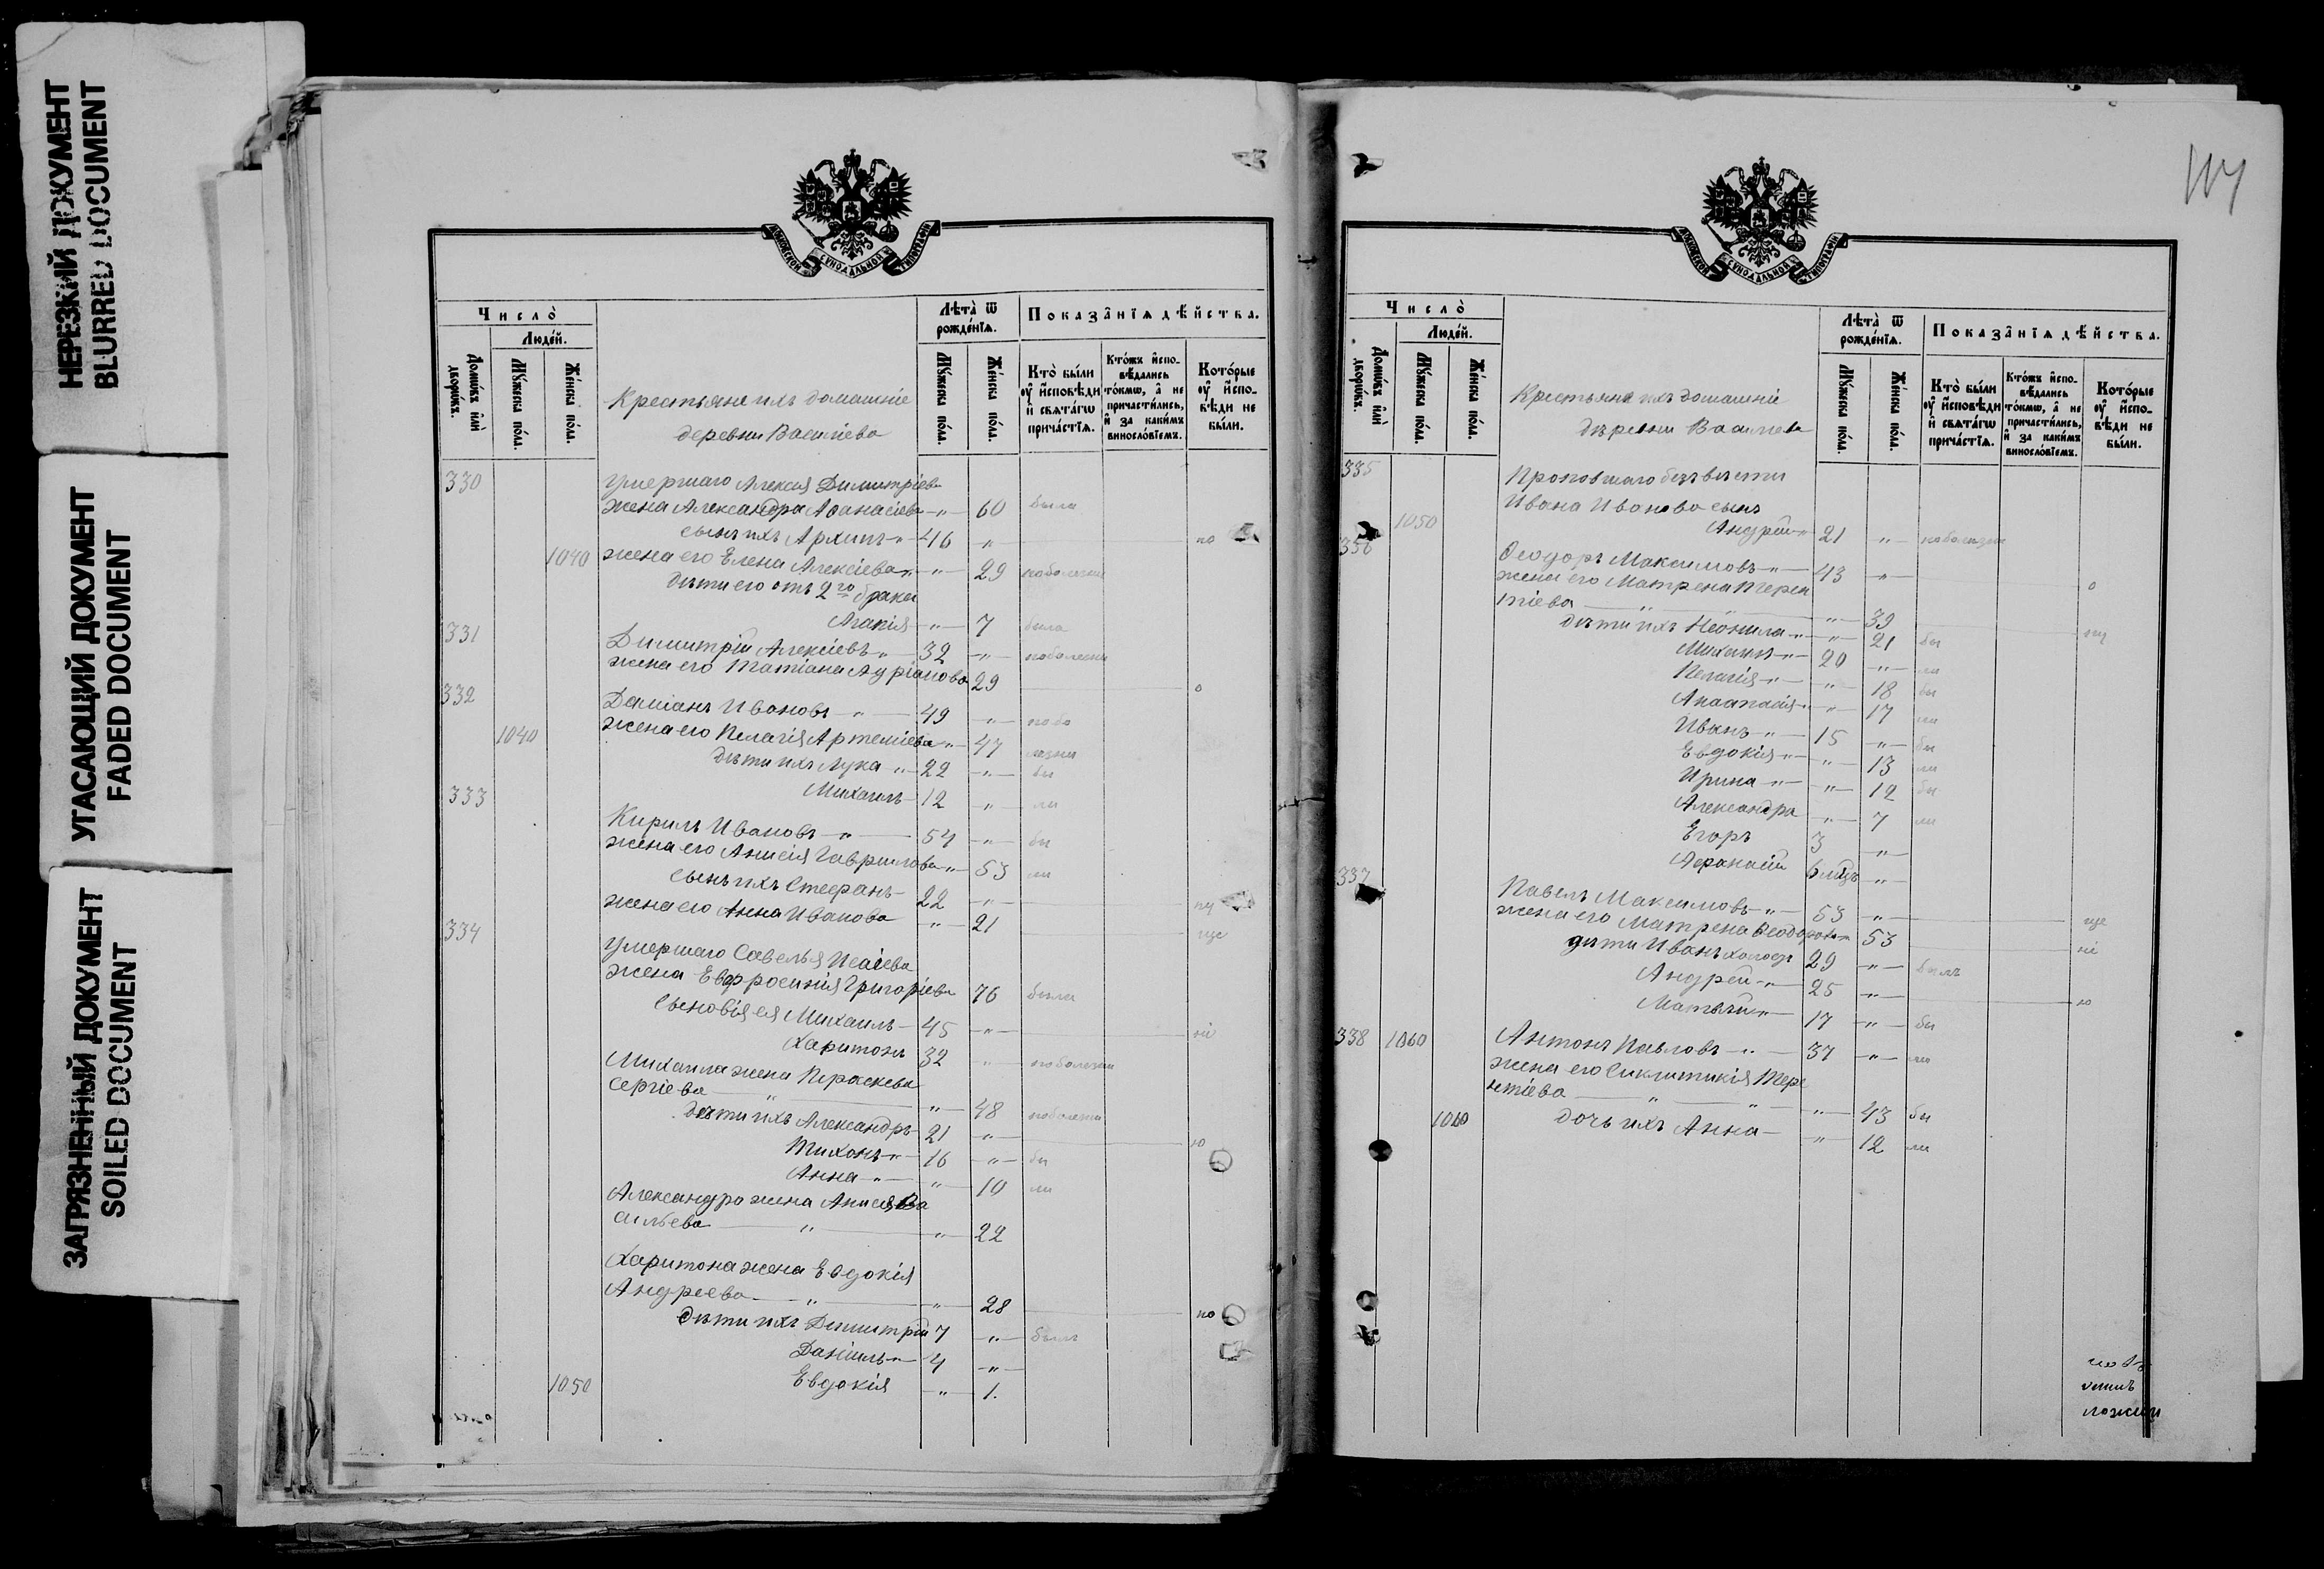 НЕРЕЗКИЙ ДОКУМЕНТ
BLURRED DOCUMENT
УГАСАЮЩИЙ ДОКУМЕНТ
FADED DOCUMENT
ЗАГРЯЗНЕННЫЙ ДОКУМЕНТ
SOILED DOCUMENT
МОСКОВСКОЙ СѴНОДАЛЬНОЙ ТИПОГРАФІИ
Число̀
Люде́й.
Домѡ́въ и҆лѝ дворѡ́въ.
Мꙋ́жеска пола.
Же́нска пола.
Крестьяне ихъ домашніе
деревни Василіева
Лѣта̀ ѿ рожде́нїѧ.
Мꙋ́жеска пола.
Же́нска пола.
Показа̑нїѧ дѣ́йства.
Кто̀ бы́ли ᲂу҆ и҆спо́вѣди и҆ свѧта́гѡ прича́стїѧ.
Кто́жъ и҆спо-вѣ́дались то́кмѡ, а҆ не причасти́лись, и҆ за каки́мъ винословїемъ.
Кото́рые ᲂу҆ и҆спо-вѣди не бы́ли.
330 Умершаго Алексія Димитріева
жена Александра Аѳанасіева " 60 была
сынъ ихъ Архипъ " 46 " по
1040 жена его Елена Алексіева " " 29 по болезни
дѣти его отъ 2го брака
Агапія " 7 была
331 Димитрій Алексіевъ " 32 " по болезни
жена его Татіана Адріанова 29 о
332 Даміанъ Ивановъ " 49 " по бо
1040 жена его Пелагія Артеміева " 47 лезни
дѣти ихъ Лука " 22 " бы
Михаилъ 12 " ли
333 Кирилъ Ивановъ " 54 " бы
жена его Анисія Гаврилова " 53 ли
сынъ ихъ Стефанъ 22 "
жена его Анна Иванова " 21
334 Умершаго Савелья Исаіева
жена Евфросинія Григоріева 76 была
сыновія ея Михаилъ 45 "
Харитонъ 32 " по болезни
Михаила жена Параскева
Сергіева " " 48 по болезни
дѣти ихъ Александръ 21 " ю
Тихонъ " 16 " бы
Анна " " 10 ли
Александра жена Анисія Ва
сильева " " 22
Харитона жена Евдокія
Андреева " " 28 по
дѣти ихъ Димитрій 7 " былъ
Даніилъ " 4 "
1050 Евдокія " 1.
МОСКОВСКОЙ СѴНОДАЛЬНОЙ ТИПОГРАФІИ
Число̀
Люде́й.
Домѡ́въ и҆лѝ дворѡ́въ.
Мꙋ́жеска пола.
Же́нска пола.
Крестьяне ихъ домашніе
деревни Василева
Лѣта̀ ѿ рожде́нїѧ.
Мꙋ́жеска пола.
Же́нска пола.
Показа̑нїѧ дѣ́йства.
Кто̀ бы́ли ᲂу҆ и҆спо́вѣди и҆ свѧта́гѡ прича́стїѧ.
Кто́жъ и҆спо-вѣ́дались то́кмѡ, а҆ не причасти́лись, и҆ за каки́мъ винословїемъ.
Кото́рые ᲂу҆ и҆спо-вѣди не бы́ли.
335 Пропавшаго безъ вѣсти
Ивана Иванова сынъ
1050 Андрей " 21 " по болезни
336 Ѳеодоръ Максимовъ " 43 "
жена его Матрена Терен о
тіева " " " 39
дѣти ихъ Неонила " " 21 бы
Михаилъ " 20 " ли
Пелагія " " 18 бы
Анастасія " " 17 ли
Иванъ " 15 " бы
Евдокія " " 13 ли
Ирина " " 12 бы
Александра " 7 ли
Егоръ 3 "
Аѳанасій 6 мцъ "
337 Павелъ Максимовъ " 53 "
жена его Матрена Ѳеодорова 53
дѣти Иванъ холостъ 29 " былъ
Андрей " 25 " ю
Матвѣй " 17 " бы
338 1060 Антонъ Павловъ " 37 " ли
жена его Синклитикія Тере
нтіева " " " 43 бы
1060 дочь ихъ Анна " 12 ли